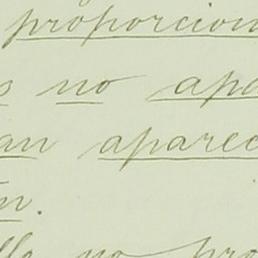 proporcion
s no apa
an aparec
n.
lla no pro